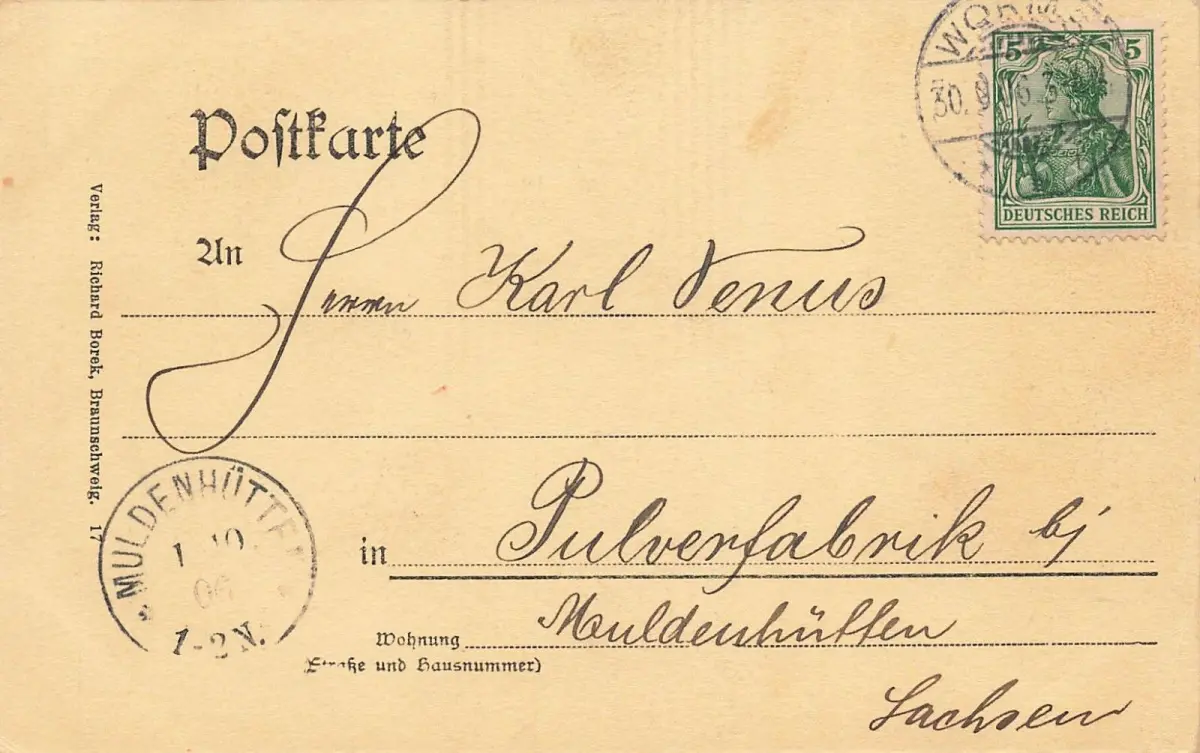 WORMS
30.9.06.
5 5
DEUTSCHES REICH
Postkarte
An
Herrn Karl Venus
in Pulverfabrik bj
Muldenhütten
Wohnung
(Straße und Hausnummer)
Sachsen
MULDENHÜTTEN
1 10.
06
1-2N.
Verlag: Richard Borek, Braunschweig. 17